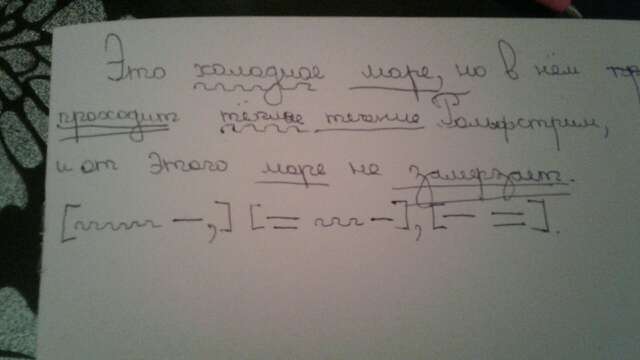 Это холодное море, но в нём пр
проходит тёплое течение Гольфстрим,
и от этого море не замерзает.
[﹏﹏ –,] [= ﹏ –], [– =].